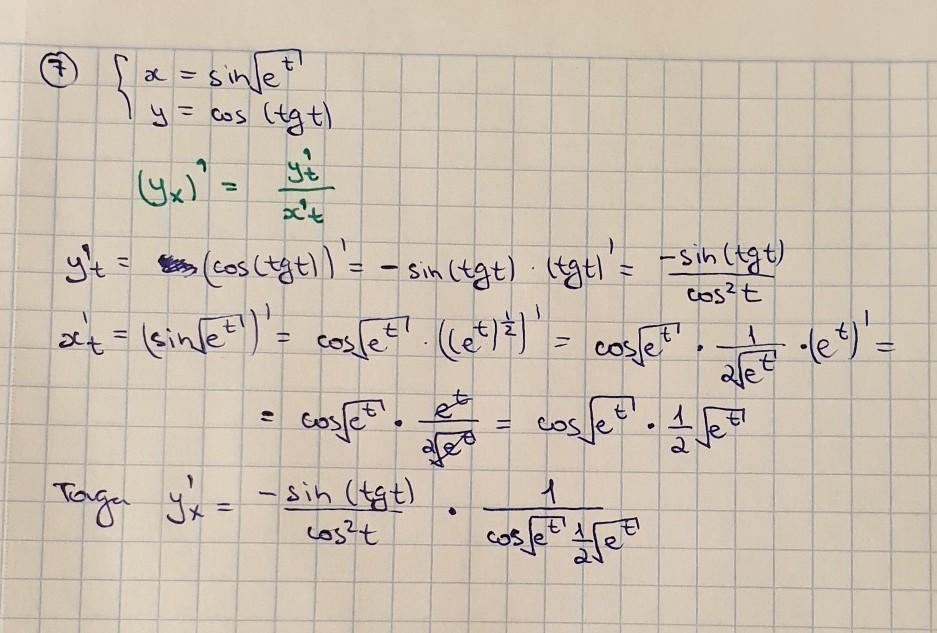 7 { x = sin√(e^t)
y = cos (tg t)
(y_x)' = y't / x't
y't = (cos(tg t))' = - sin(tg t) · (tg t)' = -sin(tg t) / cos²t
x't = (sin√(e^t))' = cos√(e^t) · ((e^t)^(1/2))' = cos√(e^t) · 1 / (2√(e^t)) · (e^t)' =
= cos√(e^t) · e^t / (2√(e^t)) = cos√(e^t) · 1/2 √(e^t)
Тогда y'x = -sin (tg t) / cos²t · 1 / (cos√(e^t) 1/2 √(e^t))